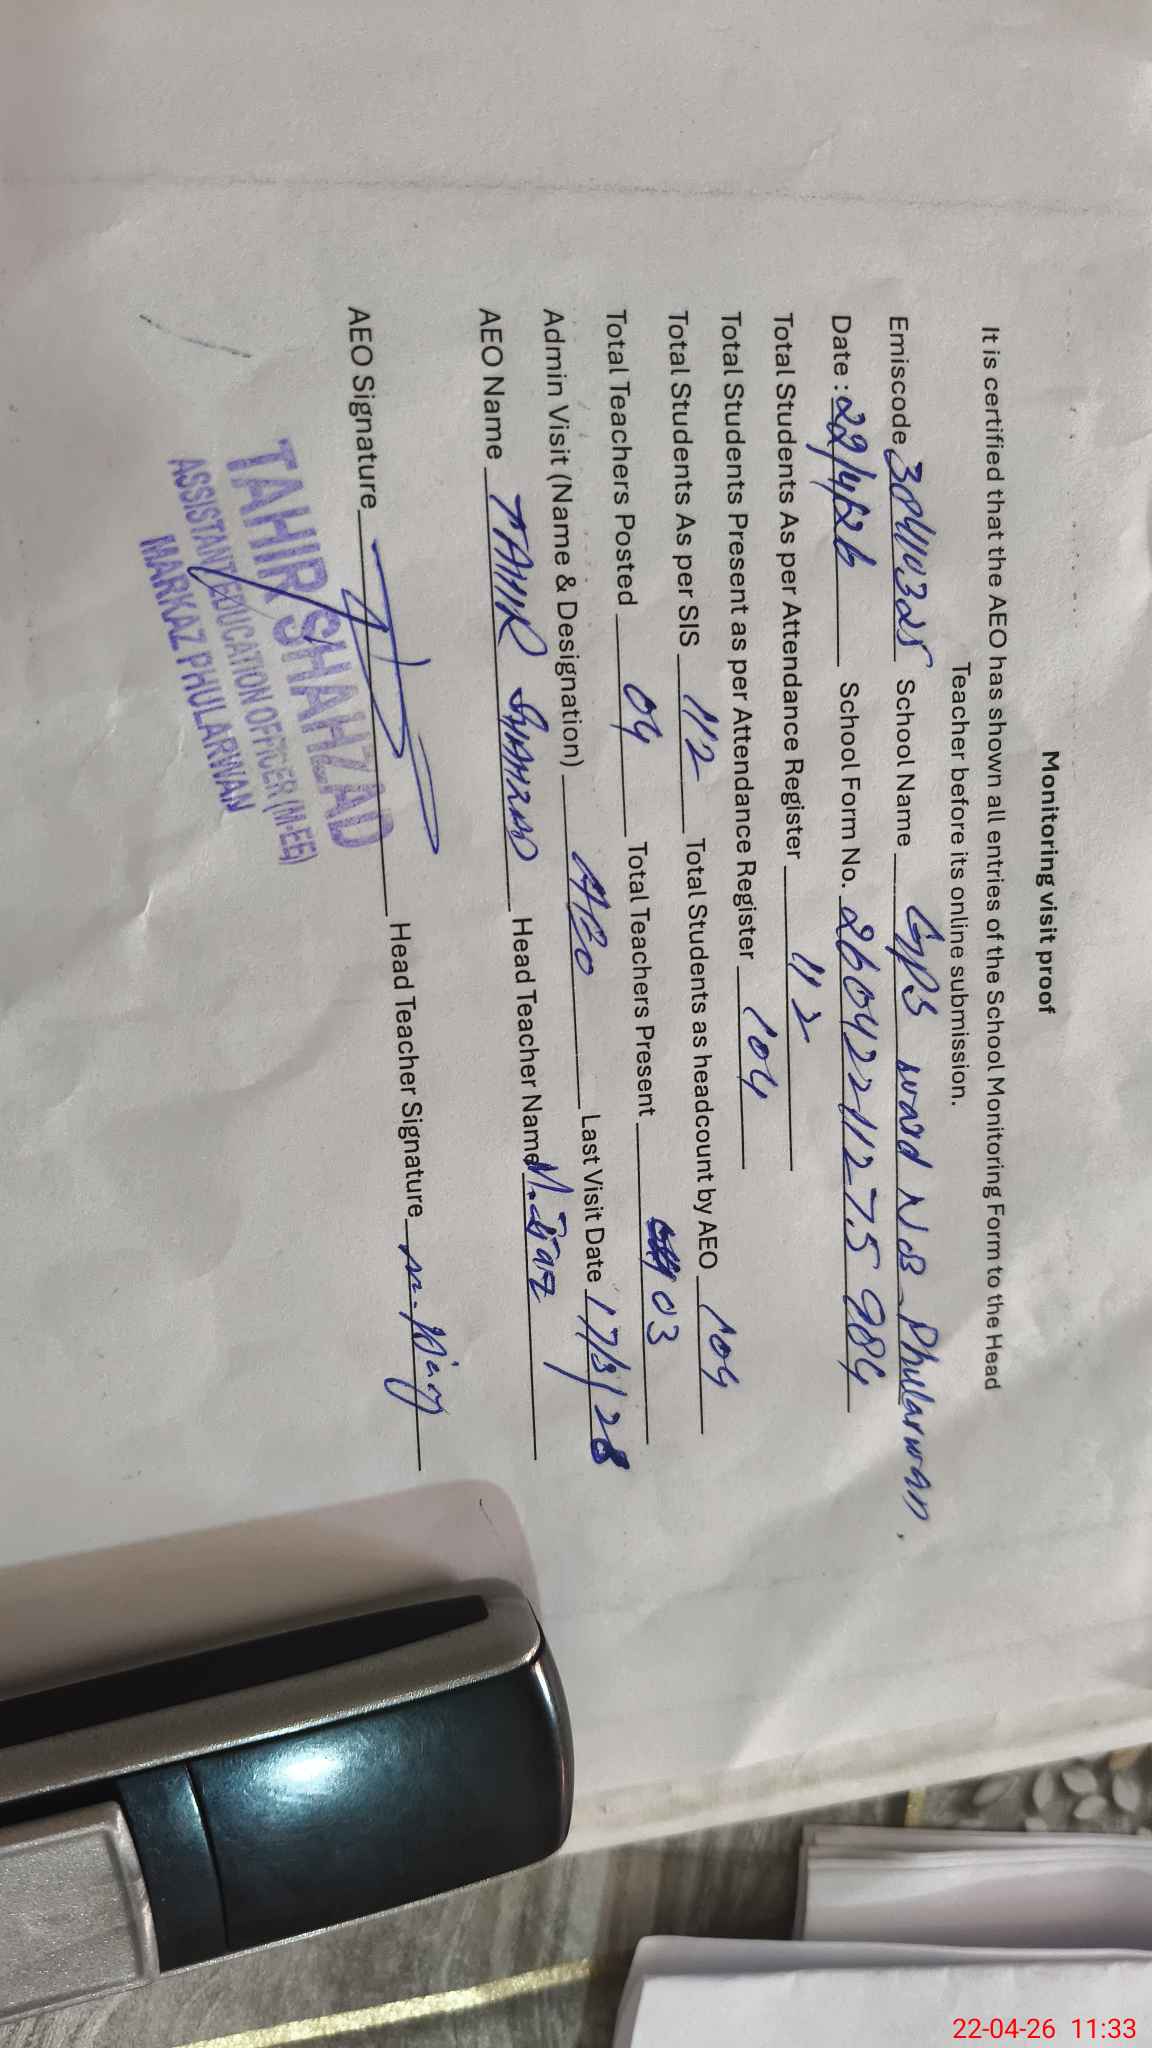 Monitoring visit proof
It is certified that the AEO has shown all entries of the School Monitoring Form to the Head
Teacher before its online submission.
Emiscode 38411032 School Name GPS ward No Phularwan.
Date: 22/4/26 School Form No. 26042211275984
Total Students As per Attendance Register 112
Total Students Present as per Attendance Register 104
Total Students As per SIS 112 Total Students as headcount by AEO 104
Total Teachers Posted 04 Total Teachers Present 03
Admin Visit (Name & Designation) AEO Last Visit Date 17/3/
AEO Name TAHIR SHAHZAD Head Teacher Name M. Ijaz
AEO Signature Head Teacher Signature M. Ijaz
TAHIR SHAHZAD
ASSISTANT EDUCATION OFFICER (M-EE)
MARKAZ PHULARWAN
22-04-26 11:33